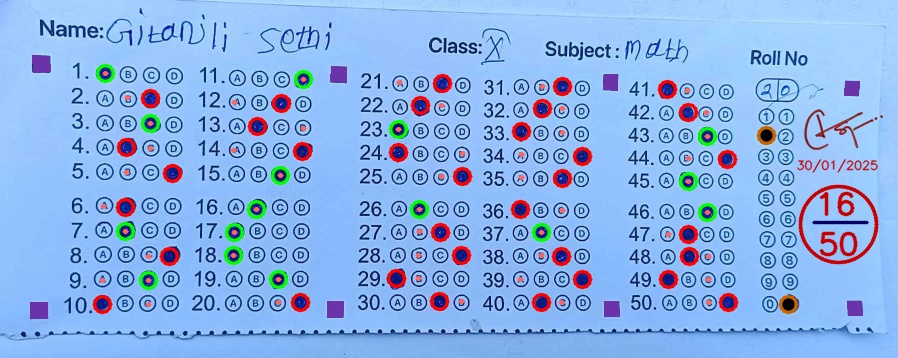 Name: Gitanjli Sethi
Class: X
Subject: math
Roll No
20
1. A B C D
2. A B C D
3. A B C D
4. A B C D
5. A B C D
6. A B C D
7. A B C D
8. A B C D
9. A B C D
10. A B C D
11. A B C D
12. A B C D
13. A B C D
14. A B C D
15. A B C D
16. A B C D
17. A B C D
18. A B C D
19. A B C D
20. A B C D
21. A B C D
22. A B C D
23. A B C D
24. A B C D
25. A B C D
26. A B C D
27. A B C D
28. A B C D
29. A B C D
30. A B C D
31. A B C D
32. A B C D
33. A B C D
34. A B C D
35. A B C D
36. A B C D
37. A B C D
38. A B C D
39. A B C D
40. A B C D
41. A B C D
42. A B C D
43. A B C D
44. A B C D
45. A B C D
46. A B C D
47. A B C D
48. A B C D
49. A B C D
50. A B C D
1 1
2
3 3
4 4
5 5
6 6
7 7
8 8
9 9
0
30/01/2025
16
50